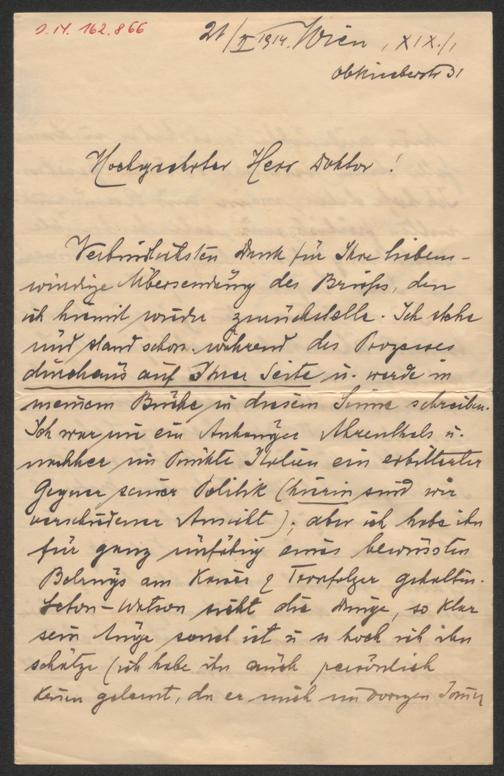 I.N. 162.866
21/II 1914. Wien, XIX./1
Hochgeehrter Herr Doktor!
Verbindlichsten Dank für Ihre liebens-
würdige Übersendung des Briefes, den
ich hiemit wieder zurückstelle. Ich stehe
und stand schon während des Prozesses
durchaus auf Ihrer Seite u. werde in
meinem Buche in diesem Sinne schreiben.
Ich war nie ein Anhänger Ährenthals u.
nachher im Punkte Italien ein erbitterter
Gegner seiner Politik (hierin sind wir
verschiedener Ansicht); aber ich habe ihn
für ganz unfähig eines bewussten
Betrugs am Kaiser & Tronfolger gehalten.
Seton-Watson sieht die Dinge, so klar
sein Auge sonst ist u so hoch ich ihn
schätze (ich habe ihn auch persönlich
kennen gelernt, da er mich im vorigen